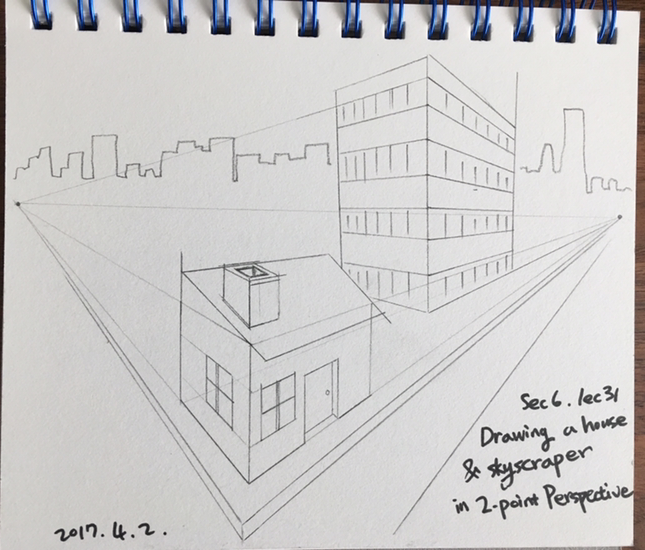 Sec 6. lec 31
Drawing a house
& skyscraper
in 2-point Perspective
2017. 4. 2.